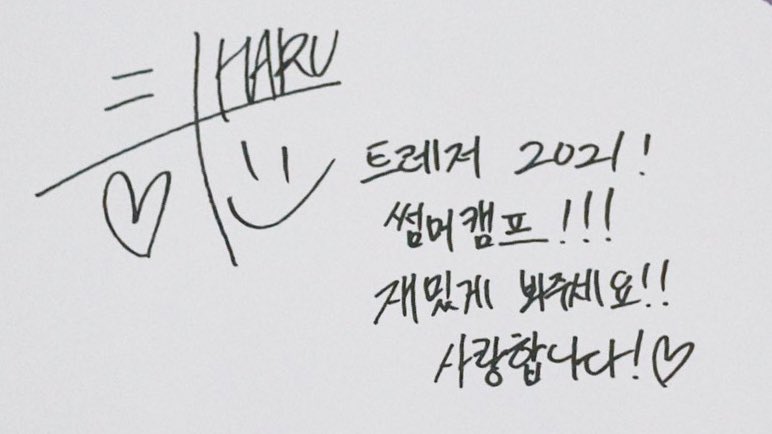 = HARU
트레저 2021!
썸머캠프!!!
재밌게 봐주세요!!
사랑합니다!♡